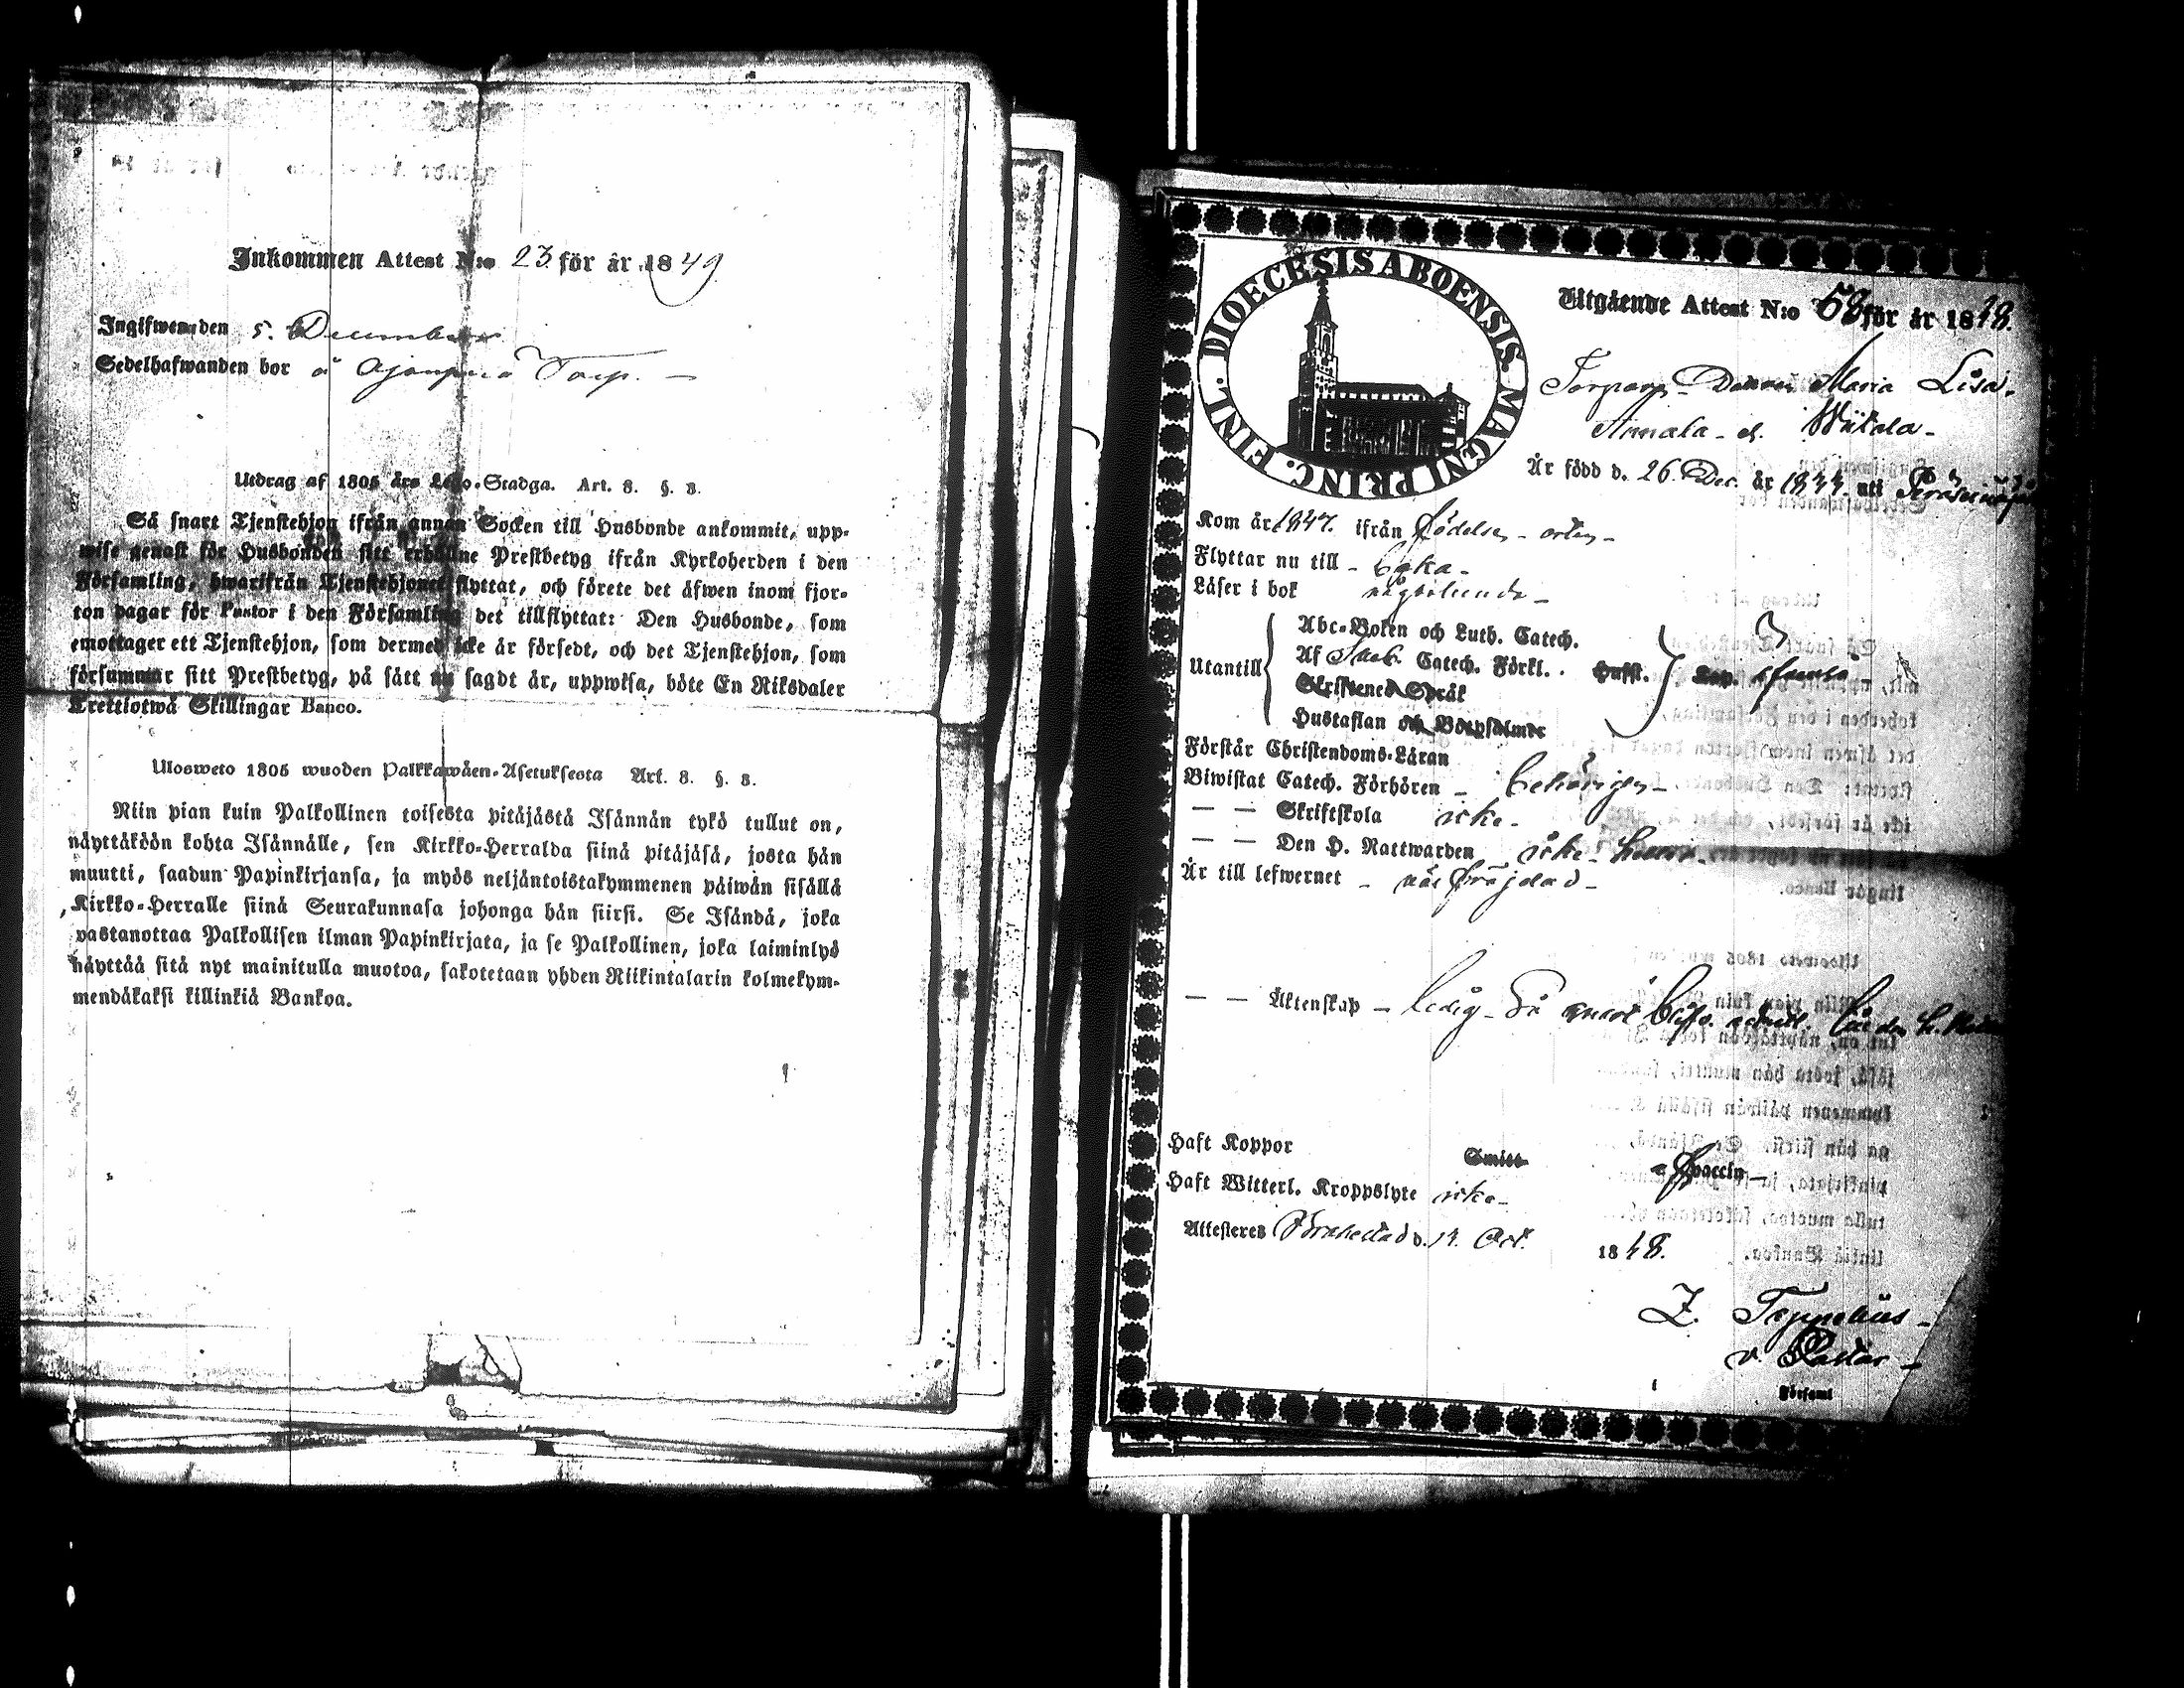 Inkommen Attest N:o 23 för år 1849
Ingifwen den 5. December
Sedelhafwanden bor å Torp. —
Utdrag af 1805 års Lego-Stadga. Art. 8. §. 8.
Så snart Tjenstehjon ifrån annan Socken till Husbonde ankommit, upp-
wise genast för Husbonden sitt erhållne Prestbetyg ifrån Kyrkoherden i den
Församling, hwarifrån Tjenstehjonet flyttat, och förete det äfwen inom fjor-
ton dagar för Pastor i den Församling det tillflyttat: Den Husbonde, som
emottager ett Tjenstehjon, som dermed icke är försedt, och det Tjenstehjon, som
försummar sitt Prestbetyg, på sätt nu sagdt är, uppwisa, böte En Riksdaler
Trettiotwå Skillingar Banco.
Ulosweto 1805 wuoden Palkkawäen-Asetuksesta Art. 8. §. 8.
Niin pian kuin Palkollinen toisesta pitäjästä Isännän tykö tullut on,
näyttäköön kohta Isännälle, sen Kirkko-Herralda siinä pitäjäsä, josta hän
muutti, saadun Papinkirjansa, ja myös neljäntoistakymmenen päiwän sisällä
Kirkko-Herralle siinä Seurakunnasa johonga hän siirsi. Se Isändä, joka
vastanottaa Palkollisen ilman Papinkirjata, ja se Palkollinen, joka laiminlyö
näyttää sitä nyt mainitulla muotoa, sakotetaan yhden Riikintalarin kolmekym-
mendäkaksi killinkiä Bankoa.
DIOECESIS ABOENSIS. MAGNI PRINC. FINL.
Utgående Attest N:o 58 för år 1848.
Maria Lisa.
Annala
Är född d. 26. Dec. år 1833. uti
Kom år 1847. ifrån födelse-orten —
Flyttar nu till —
Läser i bok någorlunda —
Utantill
Abc-Boken och Luth. Catech.
Af Catech. Förkl. Husst.
Skriftenes Språk
Hustaflan och Botpsalmer
Förstår Christendoms-Läran
Biwistat Catech. Förhören — behörigen —
— — Skriftskola icke —
— — Den H. Nattwarden icke heller —
Är till lefwernet — frejdad —
— — Äktenskap — ledig — Så snart
Haft Koppor Smitt- Vaccin —
Haft Witterl. Kroppslyte icke —
Attesteres d. Oct. 1848.
Z. Toppelius —
v. Pastor —
Församl